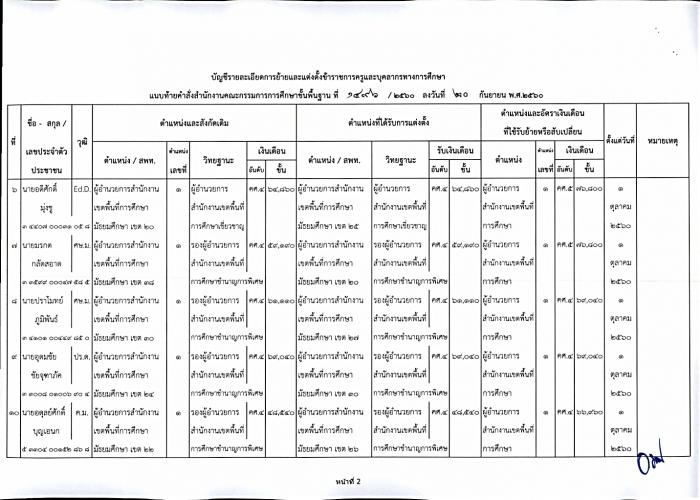 บัญชีรายละเอียดการย้ายและแต่งตั้งข้าราชการครูและบุคลากรทางการศึกษา
แนบท้ายคำสั่งสำนักงานคณะกรรมการการศึกษาขั้นพื้นฐาน ที่ /๒๕๖๐ ลงวันที่ ๒๐ กันยายน พ.ศ.๒๕๖๐
ที่ ชื่อ - สกุล / วุฒิ ตำแหน่งและสังกัดเดิม ตำแหน่งที่ได้รับการแต่งตั้ง ตำแหน่งและอัตราเงินเดือน ตั้งแต่วันที่ หมายเหตุ
ที่ใช้รับย้ายหรือสับเปลี่ยน
เลขประจำตัว ตำแหน่ง / สพท. ตำแหน่ง วิทยฐานะ เงินเดือน ตำแหน่ง / สพท. วิทยฐานะ รับเงินเดือน ตำแหน่ง ตำแหน่ง เงินเดือน
ประชาชน เลขที่ อันดับ ขั้น อันดับ ขั้น เลขที่ อันดับ ขั้น
๖ นายอดิศักดิ์ Ed.D. ผู้อำนวยการสำนักงาน ๑ ผู้อำนวยการ คศ.๔ ๖๔,๘๖๐ ผู้อำนวยการสำนักงาน ผู้อำนวยการ คศ.๔ ๖๔,๘๖๐ ผู้อำนวยการ ๑ คศ.๕ ๗๖,๘๐๐ ๑
มุ่งชู เขตพื้นที่การศึกษา สำนักงานเขตพื้นที่ เขตพื้นที่การศึกษา สำนักงานเขตพื้นที่ สำนักงานเขตพื้นที่ ตุลาคม
มัธยมศึกษา เขต ๒๐ การศึกษาเชี่ยวชาญ มัธยมศึกษา เขต ๒๕ การศึกษาเชี่ยวชาญ การศึกษา ๒๕๖๐
๗ นายมรกต ศษ.ม. ผู้อำนวยการสำนักงาน ๑ รองผู้อำนวยการ คศ.๔ ๕๙,๑๙๐ ผู้อำนวยการสำนักงาน รองผู้อำนวยการ คศ.๔ ๕๙,๑๙๐ ผู้อำนวยการ ๑ คศ.๕ ๗๖,๘๐๐ ๑
กลัดสอาด เขตพื้นที่การศึกษา สำนักงานเขตพื้นที่ เขตพื้นที่การศึกษา สำนักงานเขตพื้นที่ สำนักงานเขตพื้นที่ ตุลาคม
มัธยมศึกษา เขต ๓๘ การศึกษาชำนาญการพิเศษ มัธยมศึกษา เขต ๒๐ การศึกษาชำนาญการพิเศษ การศึกษา ๒๕๖๐
๘ นายปราโมทย์ ศษ.ม. ผู้อำนวยการสำนักงาน ๑ รองผู้อำนวยการ คศ.๔ ๖๑,๑๑๐ ผู้อำนวยการสำนักงาน รองผู้อำนวยการ คศ.๔ ๖๑,๑๑๐ ผู้อำนวยการ ๑ คศ.๔ ๖๙,๐๔๐ ๑
ภูมิพันธ์ เขตพื้นที่การศึกษา สำนักงานเขตพื้นที่ เขตพื้นที่การศึกษา สำนักงานเขตพื้นที่ สำนักงานเขตพื้นที่ ตุลาคม
มัธยมศึกษา เขต ๓๐ การศึกษาชำนาญการพิเศษ มัธยมศึกษา เขต ๒๗ การศึกษาชำนาญการพิเศษ การศึกษา ๒๕๖๐
๙ นายอุดมชัย ปร.ด. ผู้อำนวยการสำนักงาน ๑ รองผู้อำนวยการ คศ.๔ ๖๙,๐๔๐ ผู้อำนวยการสำนักงาน รองผู้อำนวยการ คศ.๔ ๖๙,๐๔๐ ผู้อำนวยการ ๑ คศ.๔ ๖๙,๐๔๐ ๑
ชัยจุฑาภัค เขตพื้นที่การศึกษา สำนักงานเขตพื้นที่ เขตพื้นที่การศึกษา สำนักงานเขตพื้นที่ สำนักงานเขตพื้นที่ ตุลาคม
มัธยมศึกษา เขต ๒๔ การศึกษาชำนาญการพิเศษ มัธยมศึกษา เขต ๓๐ การศึกษาชำนาญการพิเศษ การศึกษา ๒๕๖๐
๑๐ นายอดุลย์ศักดิ์ ค.ม. ผู้อำนวยการสำนักงาน ๑ รองผู้อำนวยการ คศ.๔ ๔๘,๕๔๐ ผู้อำนวยการสำนักงาน รองผู้อำนวยการ คศ.๔ ๔๘,๕๔๐ ผู้อำนวยการ ๑ คศ.๔ ๖๖,๙๖๐ ๑
บุญเอนก เขตพื้นที่การศึกษา สำนักงานเขตพื้นที่ เขตพื้นที่การศึกษา สำนักงานเขตพื้นที่ สำนักงานเขตพื้นที่ ตุลาคม
มัธยมศึกษา เขต ๒๒ การศึกษาชำนาญการพิเศษ มัธยมศึกษา เขต ๒๖ การศึกษาชำนาญการพิเศษ การศึกษา ๒๕๖๐
หน้าที่ 2